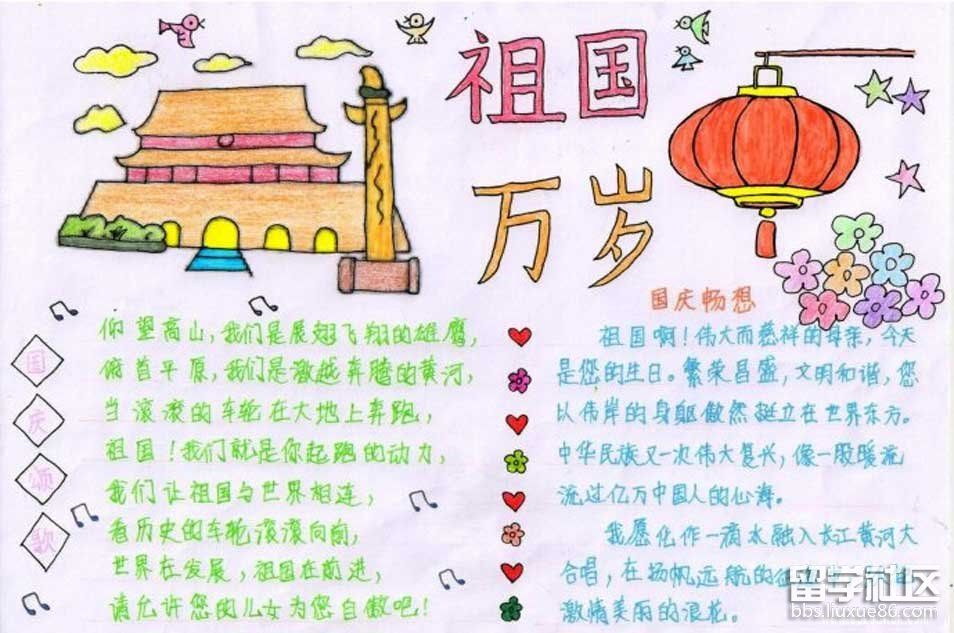 祖国
万岁
国庆颂歌
仰望高山，我们是展翅飞翔的雄鹰，
俯首平原，我们是激越奔腾的黄河，
当滚滚的车轮在大地上奔跑，
祖国！我们就是你起跑的动力，
我们让祖国与世界相连，
看历史的车轮滚滚向前，
世界在发展，祖国在前进，
请允许您的儿女为您自傲吧！
国庆畅想
祖国啊！伟大而慈祥的母亲，今天
是您的生日。繁荣昌盛，文明和谐，您
以伟岸的身躯傲然挺立在世界东方。
中华民族又一次伟大复兴，像一股暖流
流过亿万中国人的心海。
我愿化作一滴水融入长江黄河大
合唱，在扬帆远航的
激情美丽的浪花。
留学社区
bbs.liuxue86.com